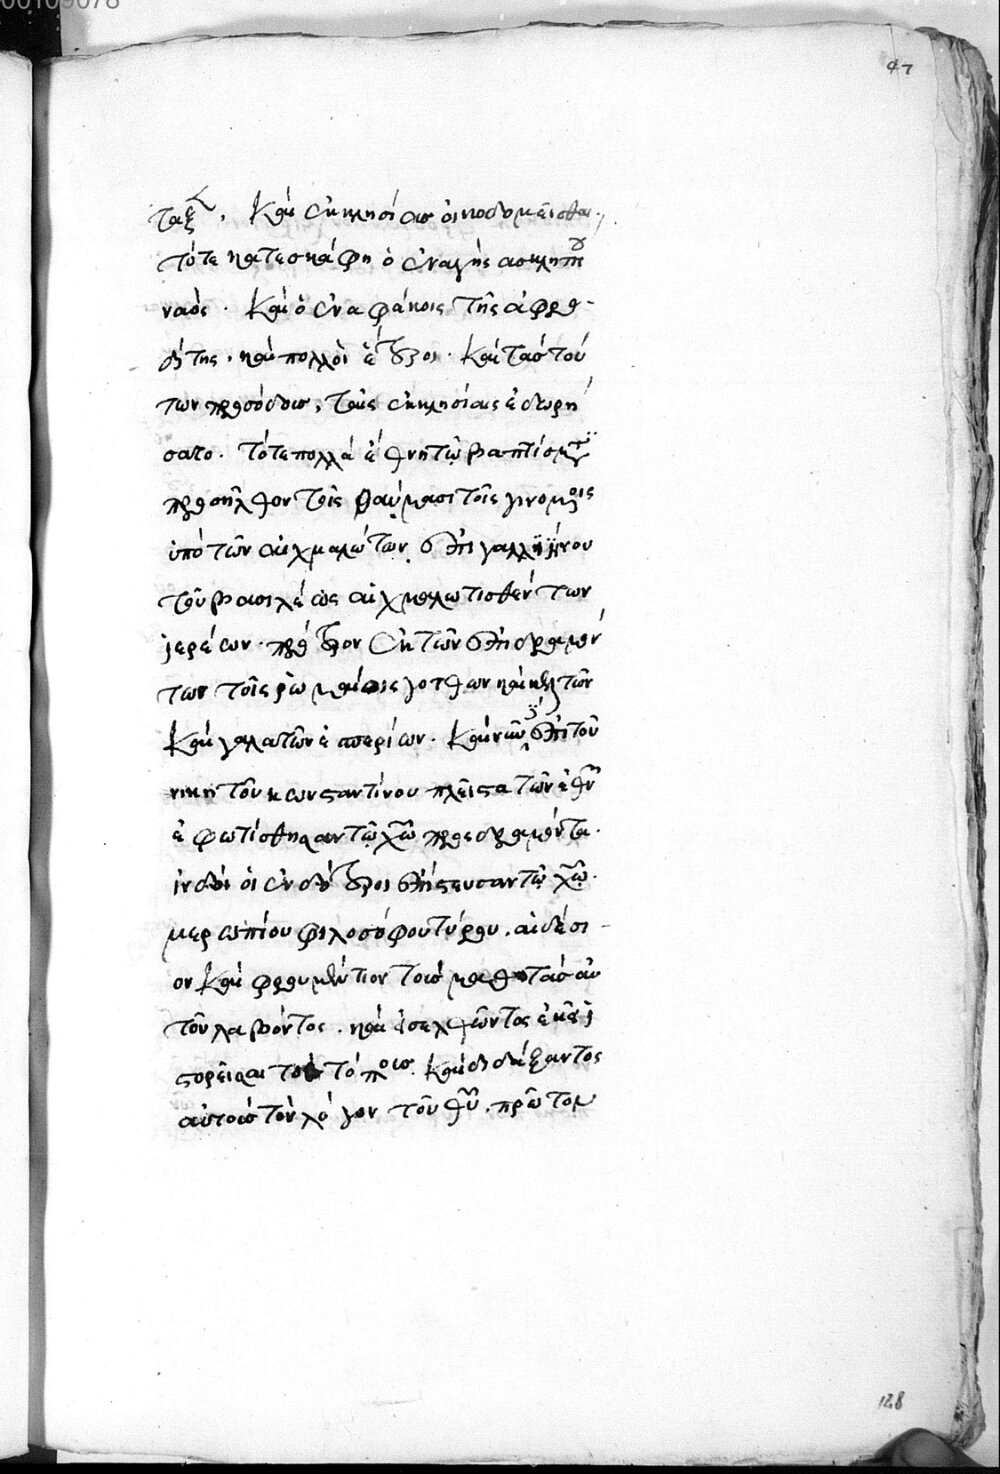 00109078
47
ταξ. Καὶ ἐκκλησίας οἰκοδομεῖσθαι.
τότε κατεσκάφη ὁ ἐν αἰγαῖς ἀσκληπιοῦ
ναός. Καὶ ὁ ἐν ἀφάκοις τῆς ἀφρο-
δίτης. καὶ πολλοὶ ἕτεροι. Καὶ τὰς τού
των προσόδους, ταῖς ἐκκλησίαις ἐδωρή
σατο. τότε πολλὰ ἔθνη τῷ βαπτίσματι
προσῆλθον τοῖς θαύμασι τοῖς γινομένοις
ὑπὸ τῶν αἰχμαλώτων ἐπὶ γαλλιήνου
τοῦ βασιλέως αἰχμαλωτισθέντων
ἱερέων. πρότερον ἐκ τῶν ἐπιδραμόν
των τοῖς ῥωμαίοις γότθων καὶ κελτῶν
Καὶ γαλατῶν ἑσπερίων. Καὶ νῦν ἐπὶ τοῦ
νικητοῦ κωνσταντίνου πλεῖστα τῶν ἐθνῶν
ἐφωτίσθησαν τῷ χῷ προσδραμόντα.
ἰνδοὶ οἱ ἐνδότεροι ἐπίστευσαν τῷ χῷ.
μερωπίου φιλοσόφου τύρου. αἰδέσι-
ον Καὶ φρουμέντιον τοὺς μαθητὰς αὐ
τοῦ λαβόντος. καὶ εἰσελθόντος ἐκεῖ ἱ
στορεῖσαι τοὺς τόπους. Καὶ διδάξαντος
αὐτοὺς τὸν λόγον τοῦ θῦ. πρῶτον
128